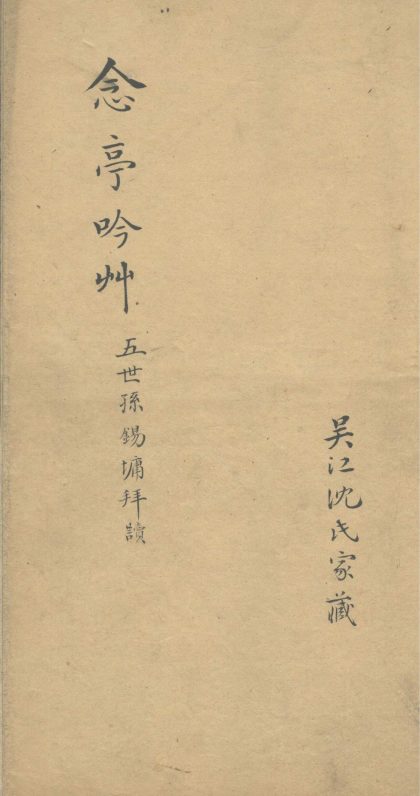 吴江沈氏家藏
念亭吟艸
五世孫錫墉拜讀